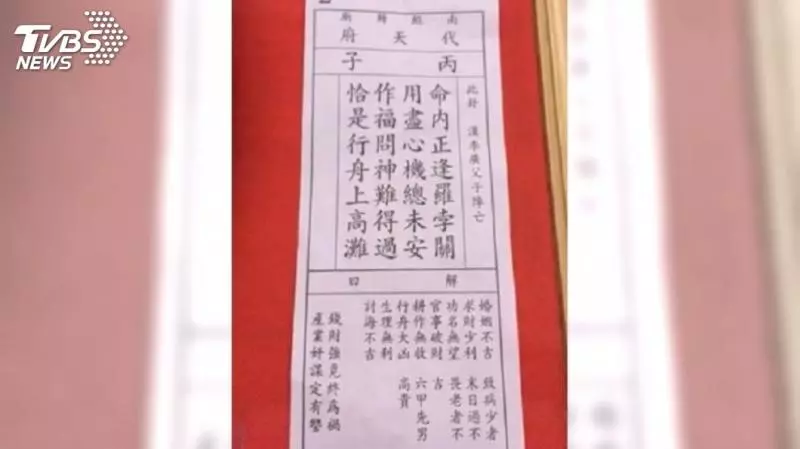 TVBS
NEWS
南鯤鯓廟
代天府
丙子
此卦 漢李廣父子陣亡
命內正逢羅孛關
用盡心機總未安
作福問神難得過
恰是行舟上高灘
解曰
婚姻不吉 致病少者
求財少利 末日過不
功名無望 畏老者不
官事破財 吉
耕作無收 六甲先男
行舟大凶 高貴
生理無利
討海不吉
錢財強覓終為禍
產業奸謀定有警